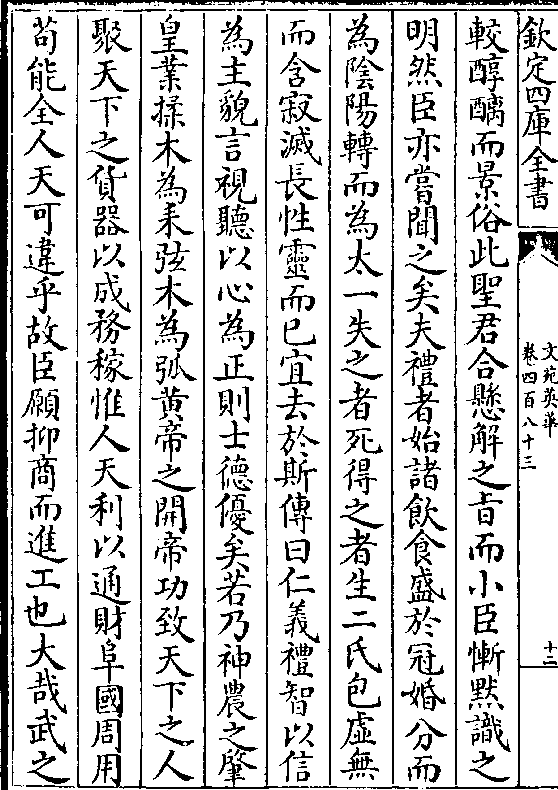 欽定四庫全書
文苑英華
卷四百八十三
十二
較醇醨而景俗此聖君合懸解之旨而小臣慚默識之
明然臣亦嘗聞之矣夫禮者始諸飲食盛於冠婚分而
為陰陽轉而為太一失之者死得之者生二氏包虛無
而含寂滅長性靈而已宜去於斯傳曰仁義禮智以信
為主貌言視聽以心為正則士德優矣若乃神農之肇
皇業揉木為耒弦木為弧黄帝之開帝功致天下之人
聚天下之貨器以成務稼惟人天利以通財阜國周用
苟能全人天可違乎故臣願抑商而進工也大哉武之